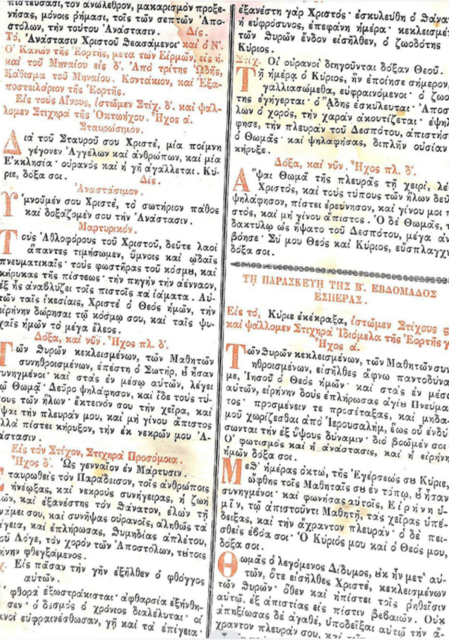 πιστεύσασι, τὸν ἀνώλεθρον, μακαρισμὸν προξε-
νήσας, μόνοις ῥήμασι, τοῖς τῶν σεπτῶν Ἀπο-
στόλων, τὴν τούτου Ἀνάστασιν. Δίς.
Τό, Ἀνάστασιν Χριστοῦ θεασάμενοι· καὶ ὁ Ν΄.
Ὁ Κανὼν τῆς Ἑορτῆς, μετὰ τῶν Εἱρμῶν, εἰς η.
καὶ τοῦ Μηναίου εἰς δ΄. Ἀπὸ τρίτης ᾨδῆς,
Κάθισμα τοῦ Μηναίου. Κοντάκιον, καὶ Ἐξα-
ποστειλάριον τῆς Ἑορτῆς.
Εἰς τοὺς Αἴνους, ἱστῶμεν Στίχ. δ΄. καὶ ψάλ-
λομεν Στιχηρὰ τῆς Ὀκτωήχου. Ἦχος α΄.
Σταυρώσιμον.
Διὰ τοῦ Σταυροῦ σου Χριστέ, μία ποίμνη
γέγονεν Ἀγγέλων καὶ ἀνθρώπων, καὶ μία
Ἐκκλησία· οὐρανὸς καὶ ἡ γῆ ἀγάλλεται. Κύ-
ριε, δόξα σοι. Δίς.
Ἀναστάσιμον.
Ὑμνοῦμέν σου Χριστέ, τὸ σωτήριον πάθος
καὶ δοξάζομέν σου τὴν Ἀνάστασιν.
Μαρτυρικόν.
Τοὺς Ἀθλοφόρους τοῦ Χριστοῦ, δεῦτε λαοὶ
ἅπαντες τιμήσωμεν, ὕμνοις καὶ ᾠδαῖς
πνευματικαῖς· τοὺς φωστῆρας τοῦ κόσμου, καὶ
κήρυκας τῆς πίστεως· τὴν πηγὴν τὴν ἀένναον,
ἐξ ἧς ἀναβλύζει τοῖς πιστοῖς τὰ ἰάματα. Αὐ-
τῶν ταῖς ἱκεσίαις, Χριστὲ ὁ Θεὸς ἡμῶν, τὴν
εἰρήνην δώρησαι τῷ κόσμῳ σου, καὶ ταῖς ψυ-
χαῖς ἡμῶν τὸ μέγα ἔλεος.
Δόξα, καὶ νῦν. Ἦχος πλ. δ΄.
Τῶν θυρῶν κεκλεισμένων, τῶν Μαθητῶν
συνηθροισμένων, ἐπέστη ὁ Σωτήρ, οὗ ἦσαν
συνηγμένοι· καὶ στὰς ἐν μέσῳ αὐτῶν, λέγει
τῷ Θωμᾷ· Δεῦρο ψηλάφησον, καὶ ἴδε τοὺς τύ-
πους τῶν ἥλων· ἔκτεινόν σου τὴν χεῖρα, καὶ
ἅψαι τὴν πλευράν μου, καὶ μὴ γίνου ἄπιστος
ἀλλὰ πίστει κήρυξον, τὴν ἐκ νεκρῶν μου Ἀ-
νάστασιν.
Εἰς τὸν Στίχον, Στιχηρὰ Προσόμοια.
Ἦχος δ΄. Ὡς γενναῖον ἐν Μάρτυσιν.
Ἐσταυρώθης τὸν Παράδεισον, τοῖς ἀνθρώποις
ἠνέῳξας, καὶ νεκροὺς συνήγειρας, ἡ ζωὴ
τῶν, καὶ ἐξανέστης τὸν θάνατον, ἑλὼν τῇ
δυνάμει σου, καὶ συνῆψας οὐρανοῖς, ἀληθῶς τὰ
ἐπίγεια, καὶ ἐπλήρωσας, θυμηδίας ἀπλέτου,
τοῦ Λόγε, τὸν χορὸν τῶν Ἀποστόλων, τούτοις
εἰρήνην φθεγξάμενος.
Στίχ. Εἰς πᾶσαν τὴν γῆν ἐξῆλθεν ὁ φθόγγος
αὐτῶν.
φθορὰ ἐξωστράκισται· ἀφθαρσία ἐξήνθη-
σεν· ὁ δεσμὸς ὁ χρόνιος διαλέλυται· οἱ
οὐρανοὶ εὐφραινέσθωσαν, γῆ καὶ τὰ ἐπίγεια·
ἐξανέστη γὰρ Χριστός· ἐσκυλεύθη ὁ θάνατος
ἡ εὐφροσύνος, ἐπεφάνη ἡμέρα· κεκλεισμένων
τῶν θυρῶν ἔνδον εἰσῆλθεν, ὁ ζωοδότης
Κύριος.
Στίχ. Οἱ οὐρανοὶ διηγοῦνται δόξαν Θεοῦ.
Τῇ ἡμέρᾳ ὁ Κύριος, ἣν ἐποίησε σήμερον,
ἀγαλλιασώμεθα, εὐφραινόμενοι· ὁ ζωο-
της ἐγήγερται· ὁ ᾍδης ἐσκύλευται· Ἀποστό-
λων ὁ χορός, τὴν χαρὰν ἀκουτίζεται· ἐψηλά-
φησε, τὴν πλευρὰν τοῦ Δεσπότου, ἀπιστήσας
ὁ Θωμᾶς· καὶ ψηλαφήσας, διπλῆν οὐσίαν
κήρυξε.
Δόξα, καὶ νῦν. Ἦχος πλ. δ΄.
Ἅψαι Θωμᾶ τῆς πλευρᾶς τῇ χειρί, λέγει
Χριστός, καὶ τοὺς τύπους τῶν ἥλων δεῦρο
ψηλάφησον, πίστει ἐρεύνησον, καὶ γίνου μοι πι-
στός, καὶ μὴ γίνου ἄπιστος. Ὁ δὲ Θωμᾶς, τῷ
δακτύλῳ ὡς ἥψατο τοῦ Δεσπότου, μέγα ἀνε-
βόησε· Σύ μου Θεὸς καὶ Κύριος, εὔσπλαγχνε
δόξα σοι.
ΤΗ ΠΑΡΑΣΚΕΥΗ ΤΗΣ Β΄. ΕΒΔΟΜΑΔΟΣ
ΕΣΠΕΡΑΣ.
Εἰς τό, Κύριε ἐκέκραξα, ἱστῶμεν Στίχους ς΄
καὶ ψάλλομεν Στιχηρὰ Ἰδιόμελα τῆς Ἑορτῆς γ΄
Ἦχος α΄.
Τῶν θυρῶν κεκλεισμένων, τῶν Μαθητῶν συνη-
θροισμένων, εἰσῆλθες ἄφνω παντοδύνα-
με, Ἰησοῦ ὁ Θεὸς ἡμῶν· καὶ στὰς ἐν μέσῳ
αὐτῶν, εἰρήνην δοὺς ἐπλήρωσας ἁγίου Πνεύμα-
τος· προσμένειν τε προσέταξας, καὶ μηδα-
μοῦ χωρίζεσθαι ἀπὸ Ἱερουσαλήμ, ἕως οὗ ἐνδύ-
σωνται τὴν ἐξ ὕψους δύναμιν· διὸ βοῶμέν σοι·
Ὁ φωτισμὸς καὶ ἡ ἀνάστασις, καὶ ἡ εἰρήνη
ἡμῶν δόξα σοι.
Μεθ᾽ ἡμέρας ὀκτώ, τῆς Ἐγέρσεώς σου Κύριε,
ὤφθης τοῖς Μαθηταῖς σου ἐν τόπῳ, οὗ ἦσαν
συνηγμένοι· καὶ φωνήσας αὐτοῖς, Εἰρήνη ὑ-
μῖν, τῷ ἀπιστοῦντι Μαθητῇ, τὰς χεῖρας ὑπέ-
δειξας, καὶ τὴν ἄχραντον πλευράν· ὁ δὲ πει-
σθεὶς ἐβόα σοι· Ὁ Κύριός μου καὶ ὁ Θεός μου,
δόξα σοι.
Θωμᾶς ὁ λεγόμενος Δίδυμος, οὐκ ἦν μετ᾽ αὐ-
τῶν, ὅτε εἰσῆλθες Χριστέ, κεκλεισμένων
τῶν θυρῶν· ὅθεν καὶ ἠπίστει τοῖς ῥηθεῖσιν
αὐτῷ, ἐξ ἀπιστίας εἰς πίστιν βεβαιῶν. Οὐκ
ἀπηξίωσας δὲ ἀγαθέ, ὑποδεῖξαι αὐτῷ τὴν ἄ-
χραντον πλευράν σου καὶ